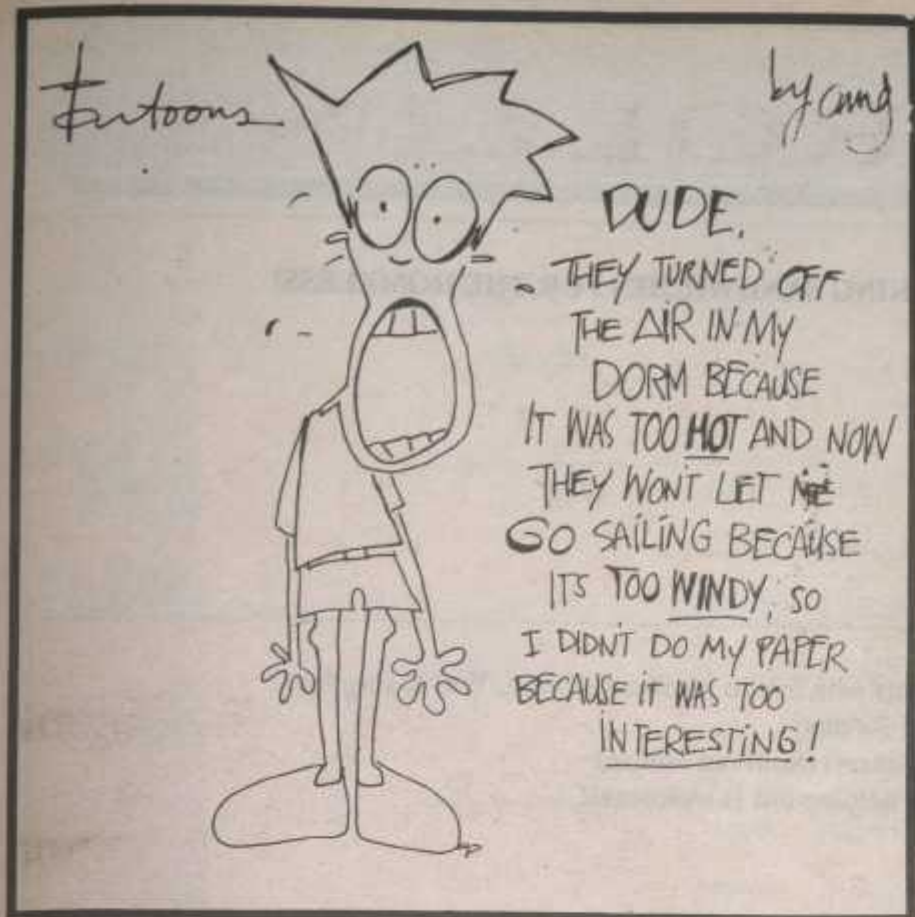 by cang
DUDE,
THEY TURNED OFF
THE AIR IN MY
DORM BECAUSE
IT WAS TOO HOT AND NOW
THEY WONT LET ME
GO SAILING BECAUSE
ITS TOO WINDY, SO
I DIDN'T DO MY PAPER
BECAUSE IT WAS TOO
INTERESTING!